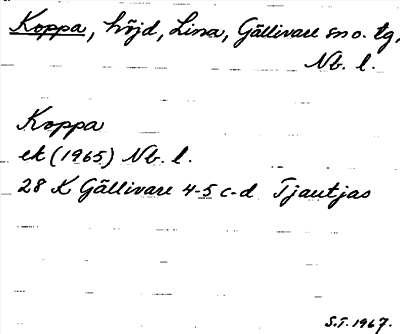 Koppa, höjd, Lina, Gällivare sn o. tg,
Nb. l.
Koppa
ek (1965) Nb. l.
28 K Gällivare 4-5 c-d Tjautjas
S.T. 1967.